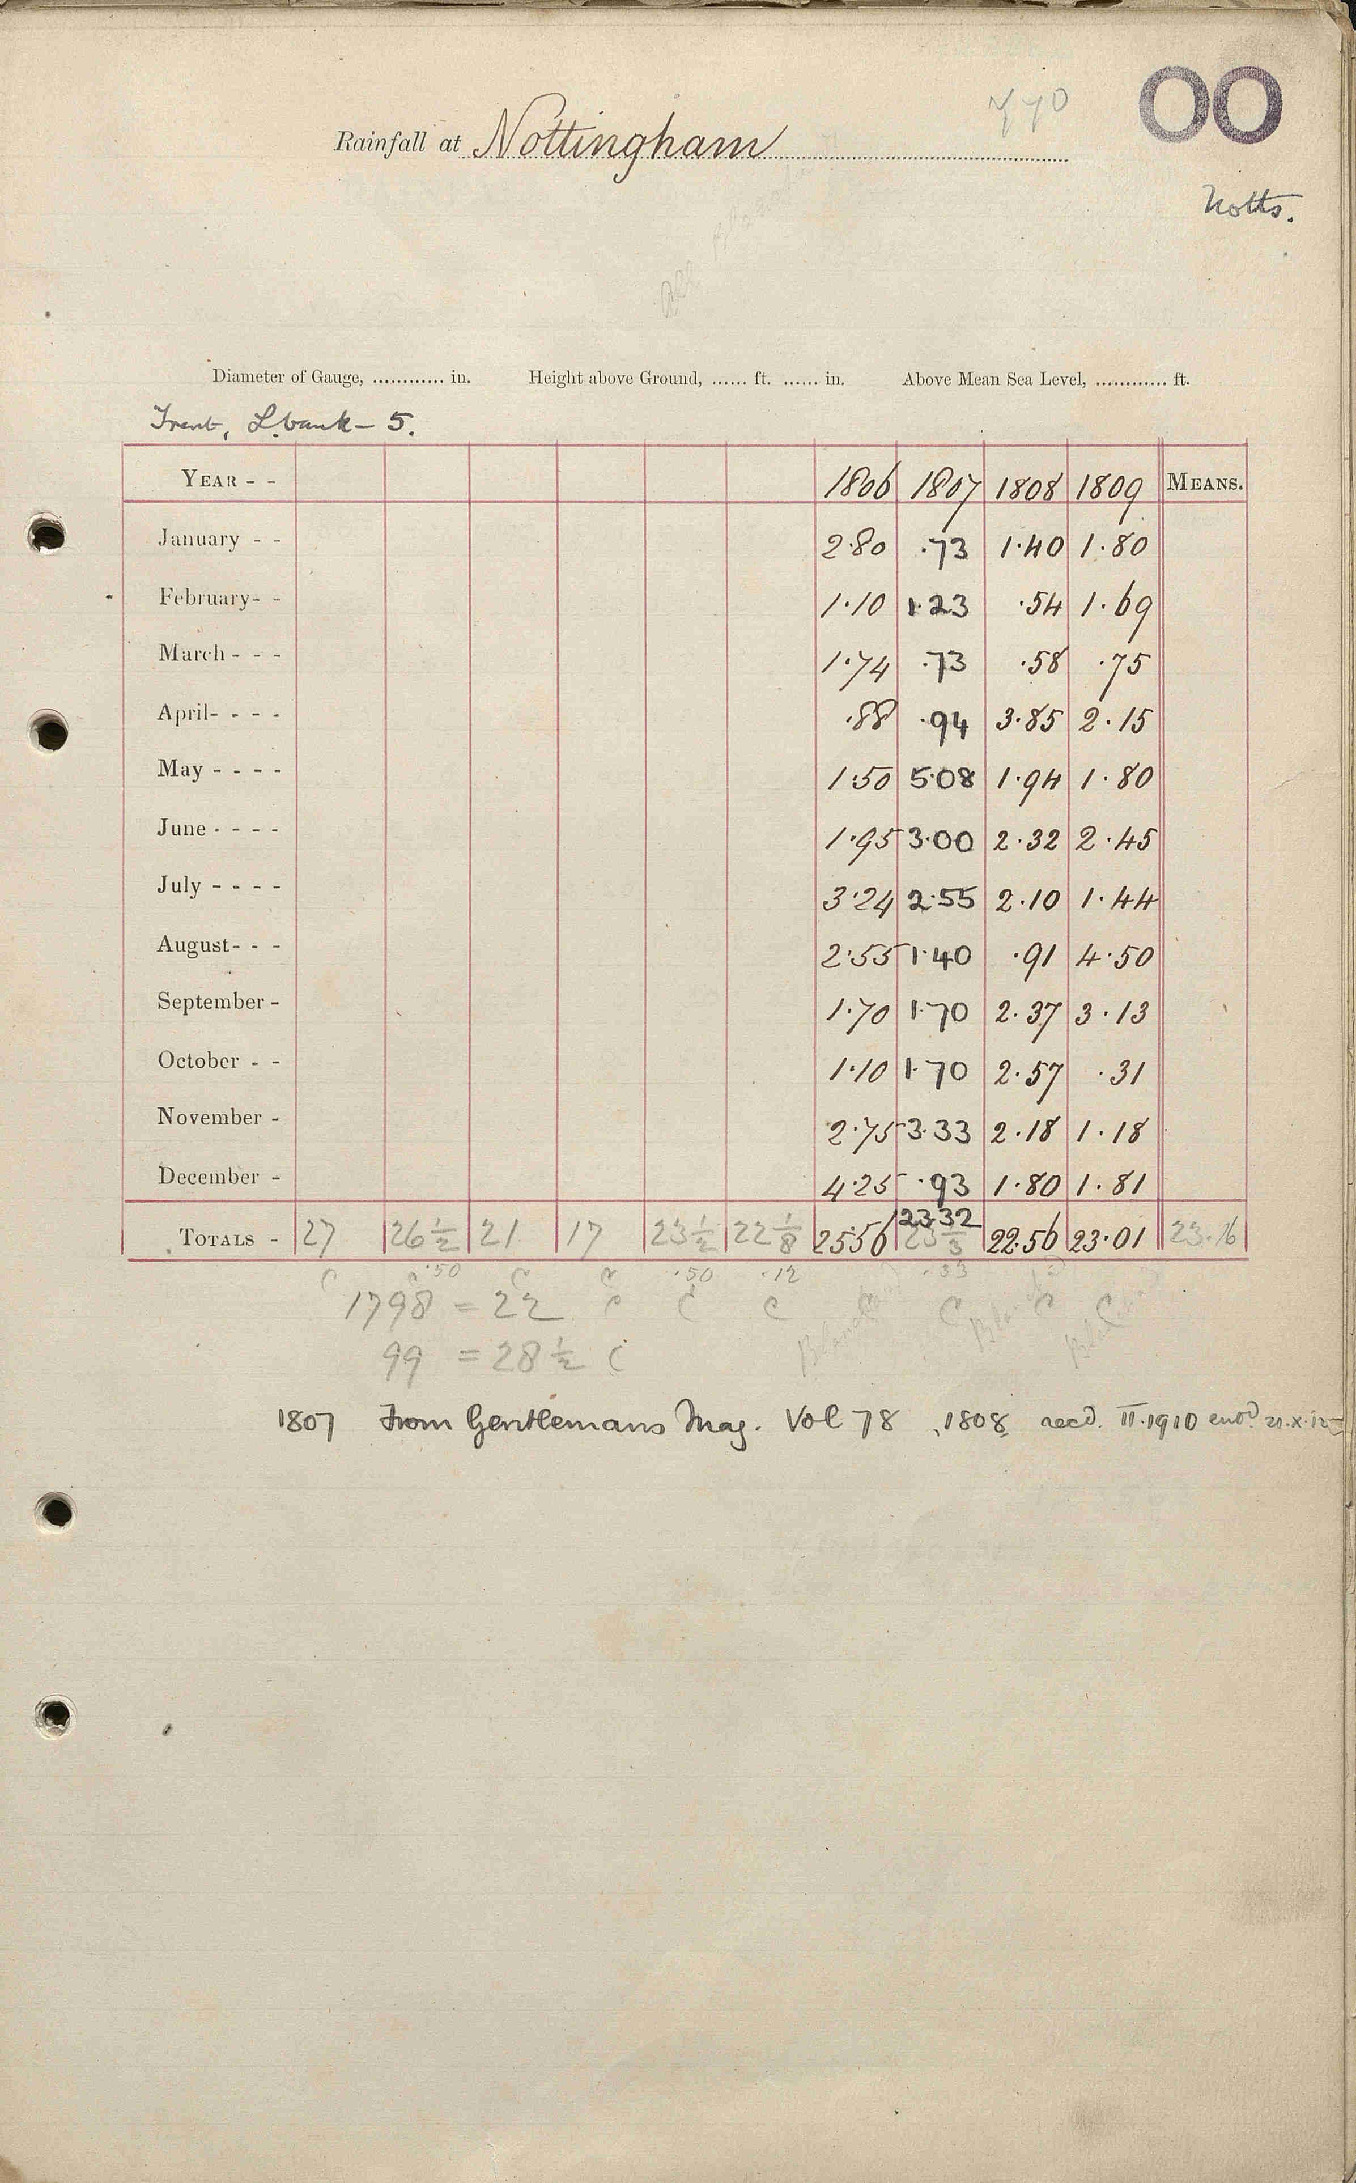 OO
Rainfall at Nottingham
Notts.
Diameter of Gauge, ............ in. Height above Ground, ...... ft. ...... in. Above Mean Sea Level, ............ ft.
Trent, L. bank - 5.
YEAR - - 1806 1807 1808 1809 MEANS.
January - - 2.80 .73 1.40 1.80
February - - 1.10 1.23 .54 1.69
March - - - 1.74 .73 .58 .75
April - - - - .88 .94 3.85 2.15
May - - - - 1.50 5.08 1.94 1.80
June - - - - 1.95 3.00 2.32 2.45
July - - - - 3.24 2.55 2.10 1.44
August - - - 2.55 1.40 .91 4.50
September - 1.70 1.70 2.37 3.13
October - - 1.10 1.70 2.57 .31
November - 2.75 3.33 2.18 1.18
December - 4.25 .93 1.80 1.81
23.32
TOTALS - 27 26 1/2 21 17 23 1/2 22 1/8 25.56 23 1/3 22.56 23.01 23.16
.50 .50 .12 .33
C C C C C C C C C C
1798 = 22
99 = 28 1/2 C
1807 From Gentlemans Mag. Vol 78, 1808, recd. II.1910